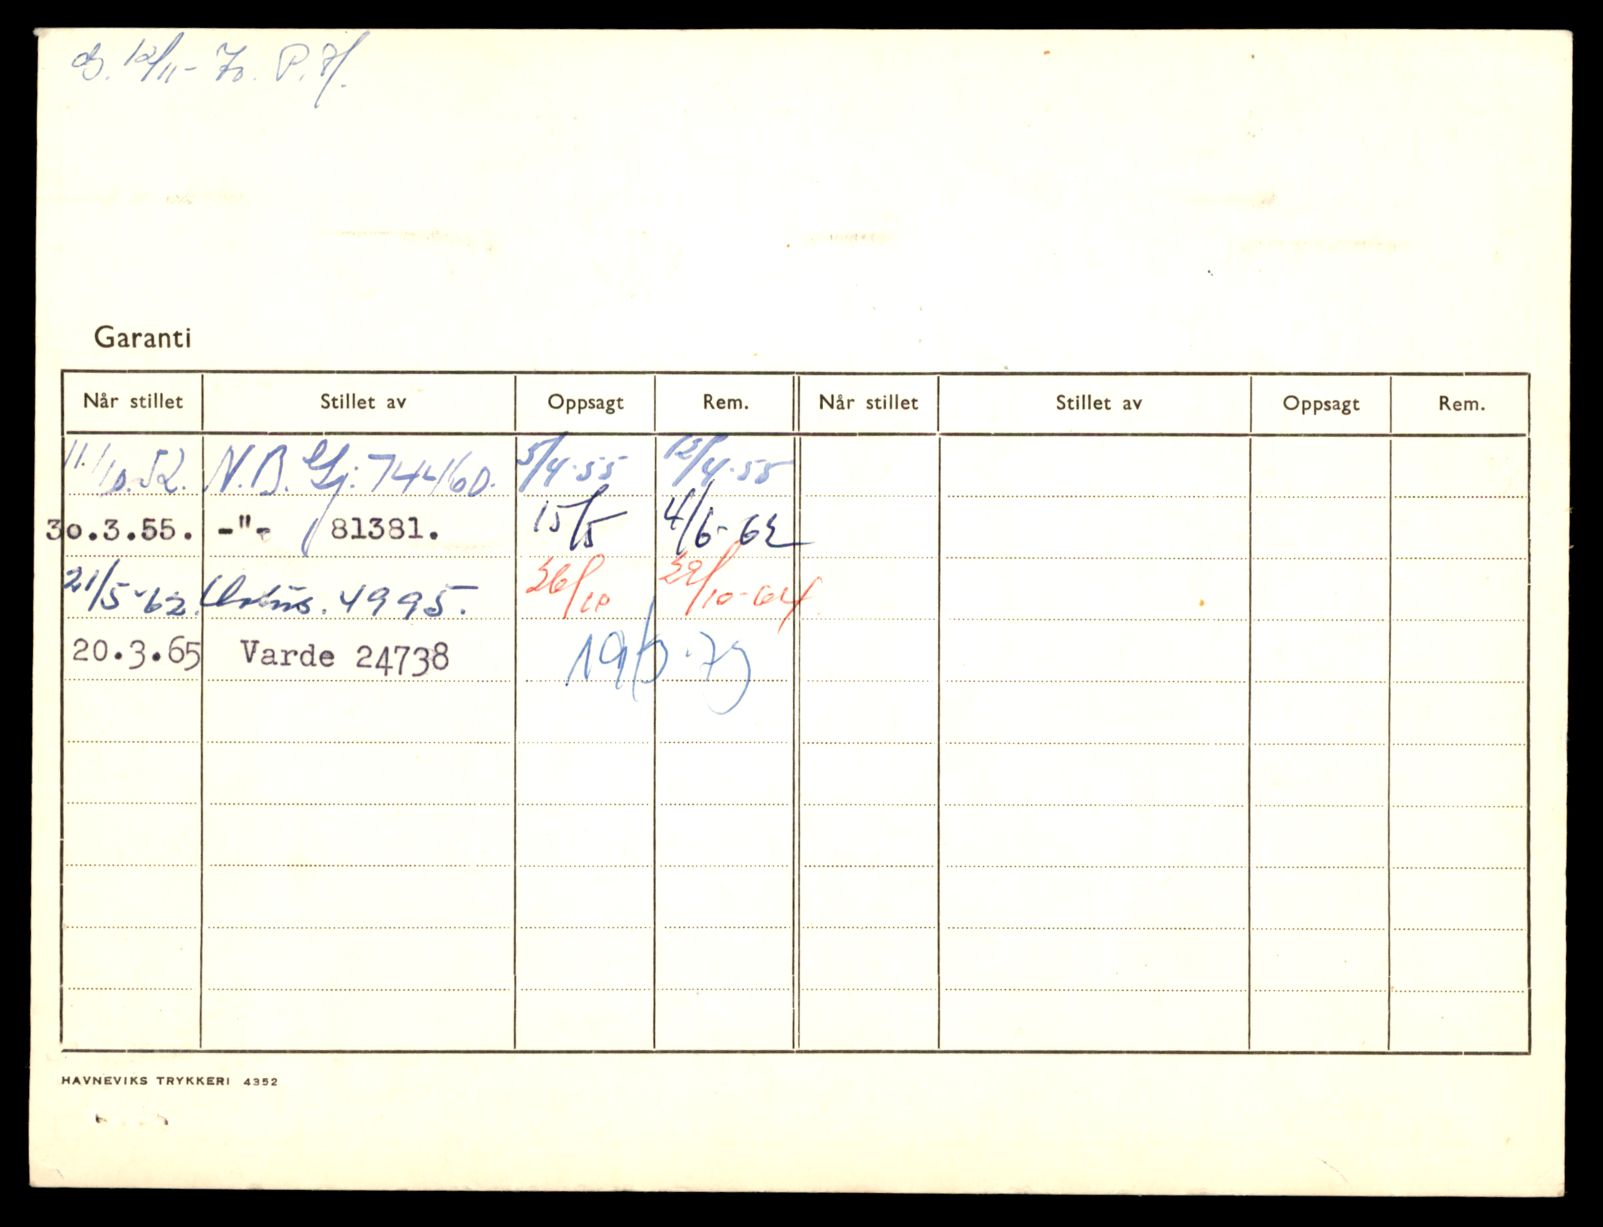 12/11-70. P.
Garanti
Når stillet Stillet av Oppsagt Rem. Når stillet Stillet av Oppsagt Rem.
11/10.52. N.B. Gj. 74460. 5/4-55 12/4-55
30.3.55. -"- 81381. 15/5 4/6-62
21/5-62. 4995. 26/10 29/10-64
20.3.65 Varde 24738 19/3.73
HAVNEVIKS TRYKKERI 4352